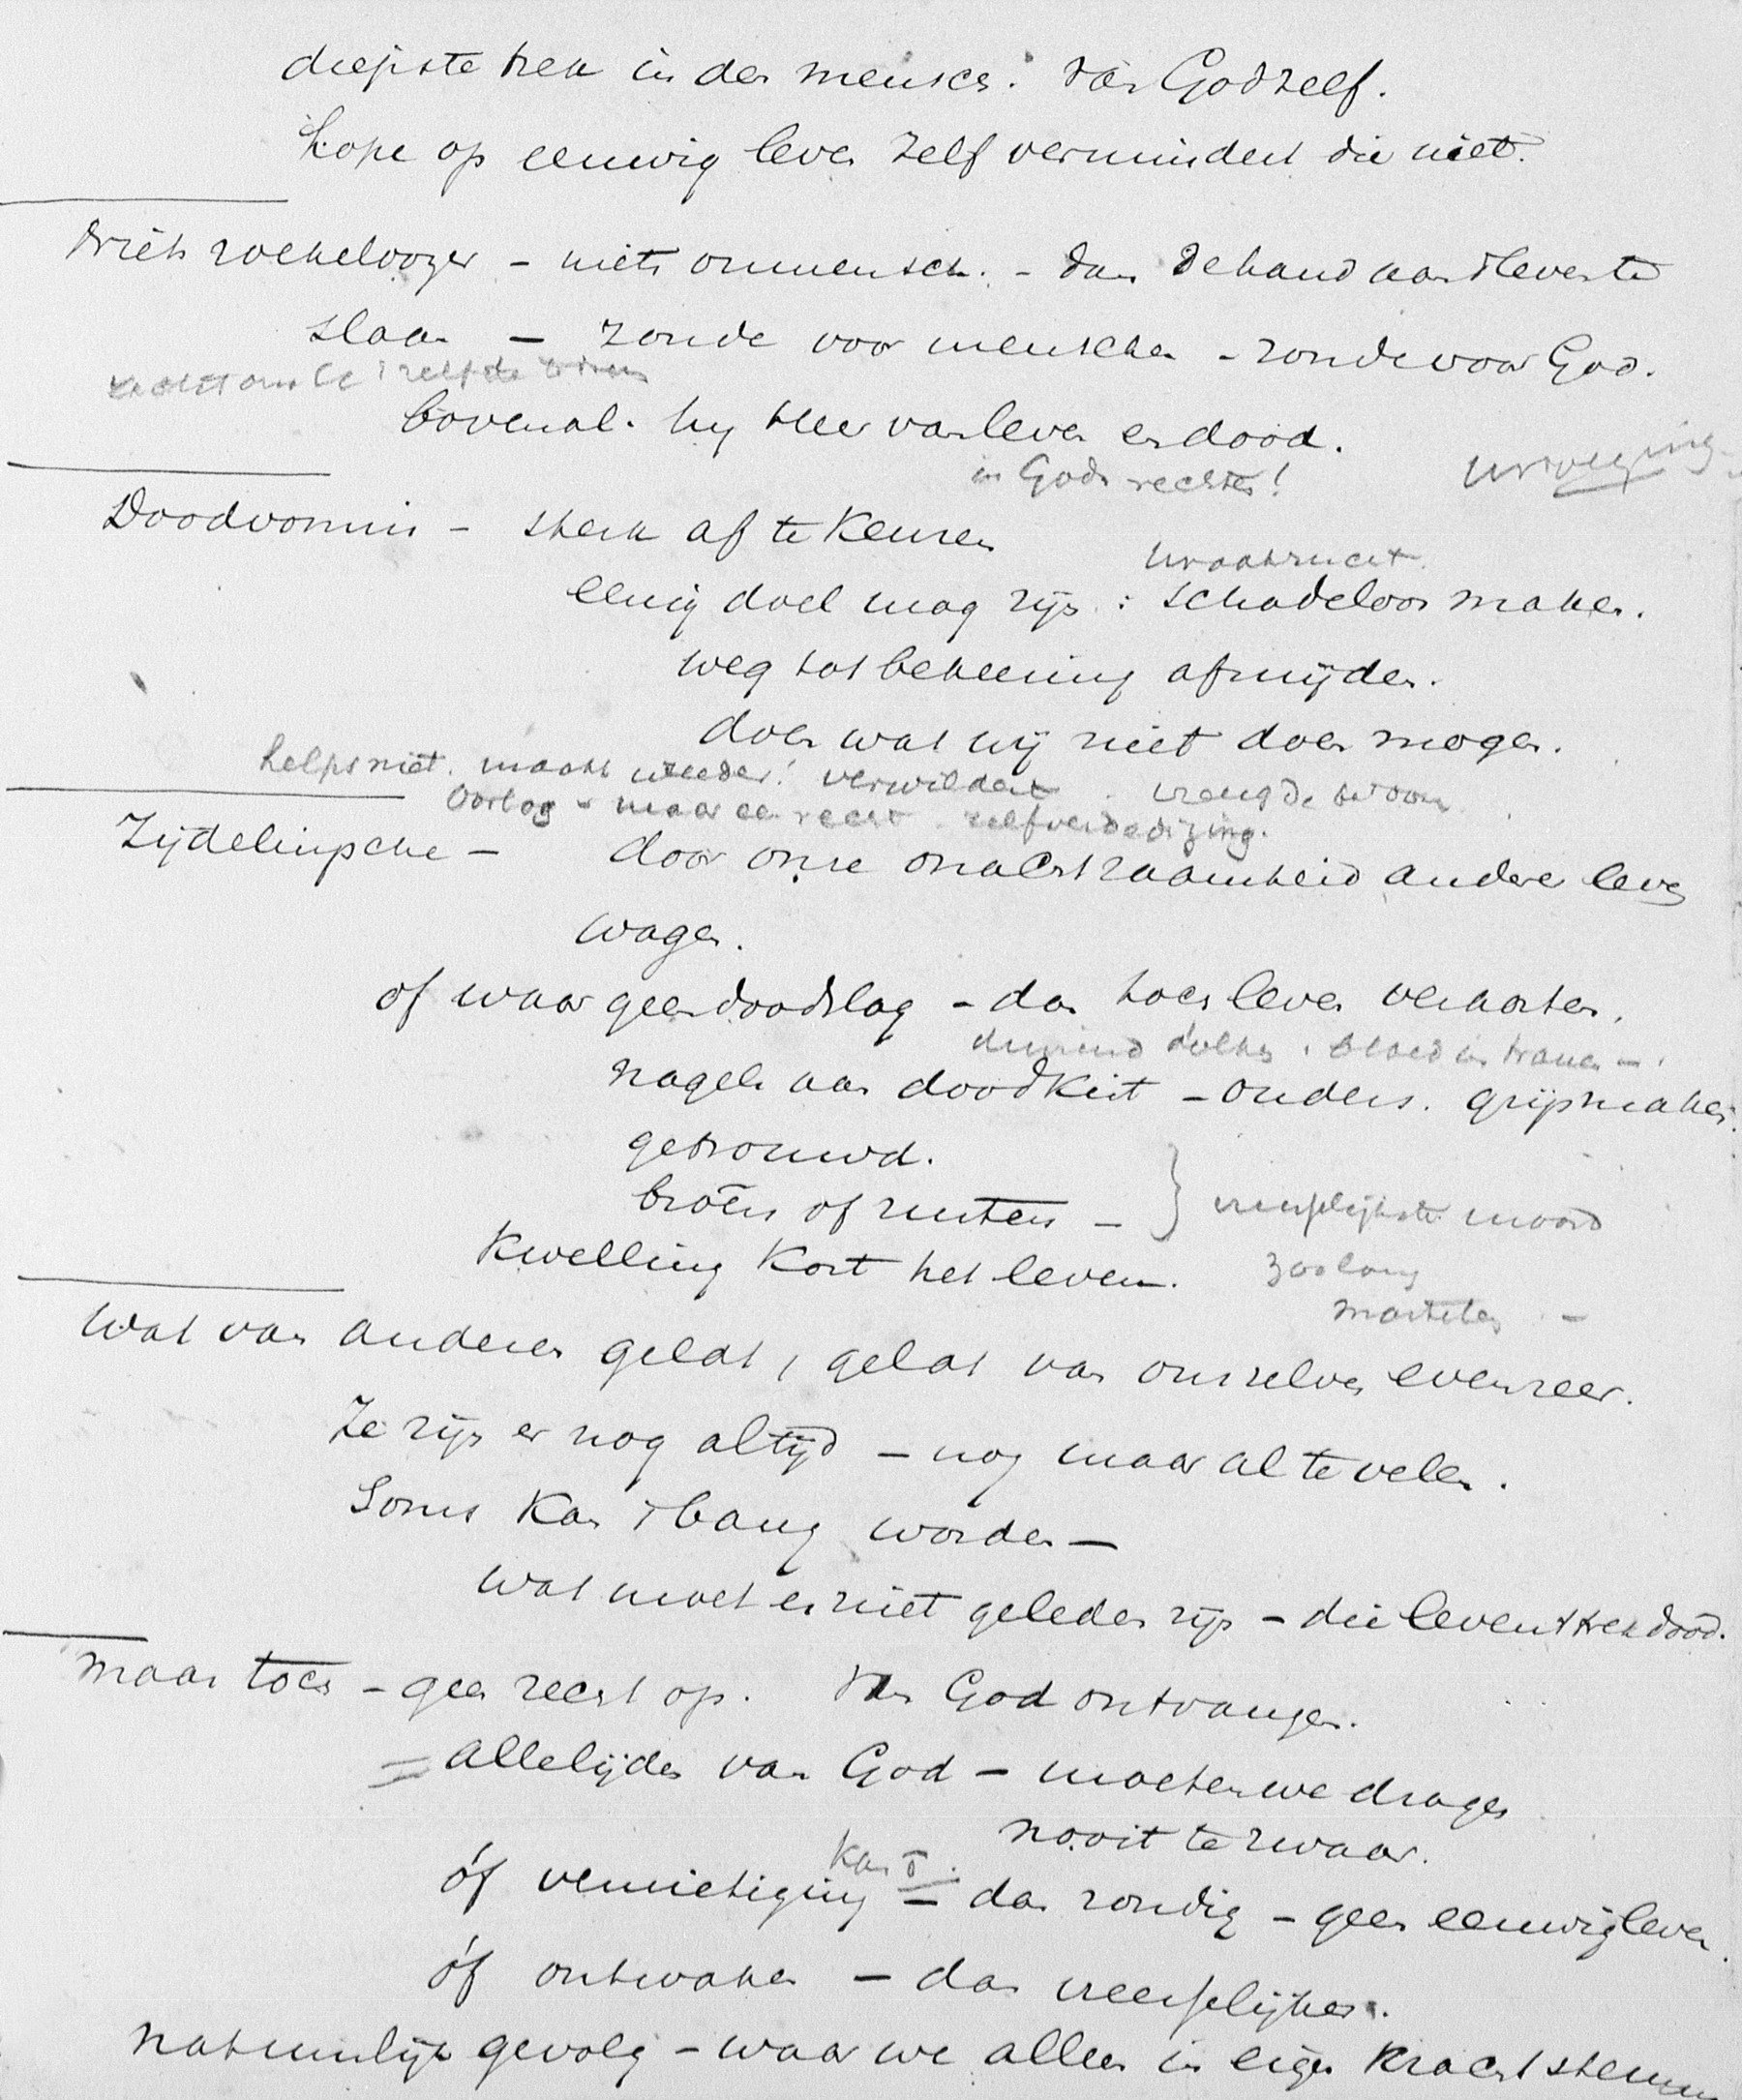 diepste trek in den mensch. Van God zelf.
hope op eeuwig leven zelf vermindert die niet.
Niets roekeloozer - niets onmensch. - dan de hand aan 't leven te
slaan - zonde voor menschen - zonde voor God.
't zelfde
bovenal. hij Heer van leven en dood.
in Gods rechten!
Doodvonnis - sterk af te keuren
wraakzucht.
eenig doel mag zijn: schadeloos maken.
weg tot bekeering afsnijden.
doen wat wij niet doen mogen.
helpt niet. maakt wreeder! verwildert. vreugde
Oorlog - maar een recht zelfverdediging.
Zijdelingsche - door onze onachtzaamheid anderer leven
wagen.
of waar geen doodslag - dan toch leven verkorten.
bloed en tranen -
nagels aan doodkist - ouders. grijs maken.
getrouwd.
broers of zusters - } vreeselijkste moord
kwelling kort het leven. zoolang
martelen -
Wat van anderen geldt, geldt van onszelven evenzeer.
Ze zijn er nog altijd - nog maar al te velen.
Soms kan 't bang worden -
wat moet er niet geleden zijn - die
maar toch - geen recht op. Van God ontvangen.
= alle lijden van God - moeten we dragen
nooit te zwaar.
kan
óf vernietiging - dan zondig - geen eeuwig leven.
óf ontwaken - dan vreeselijker.
natuurlijk gevolg - waar we alleen in eigen kracht steunen